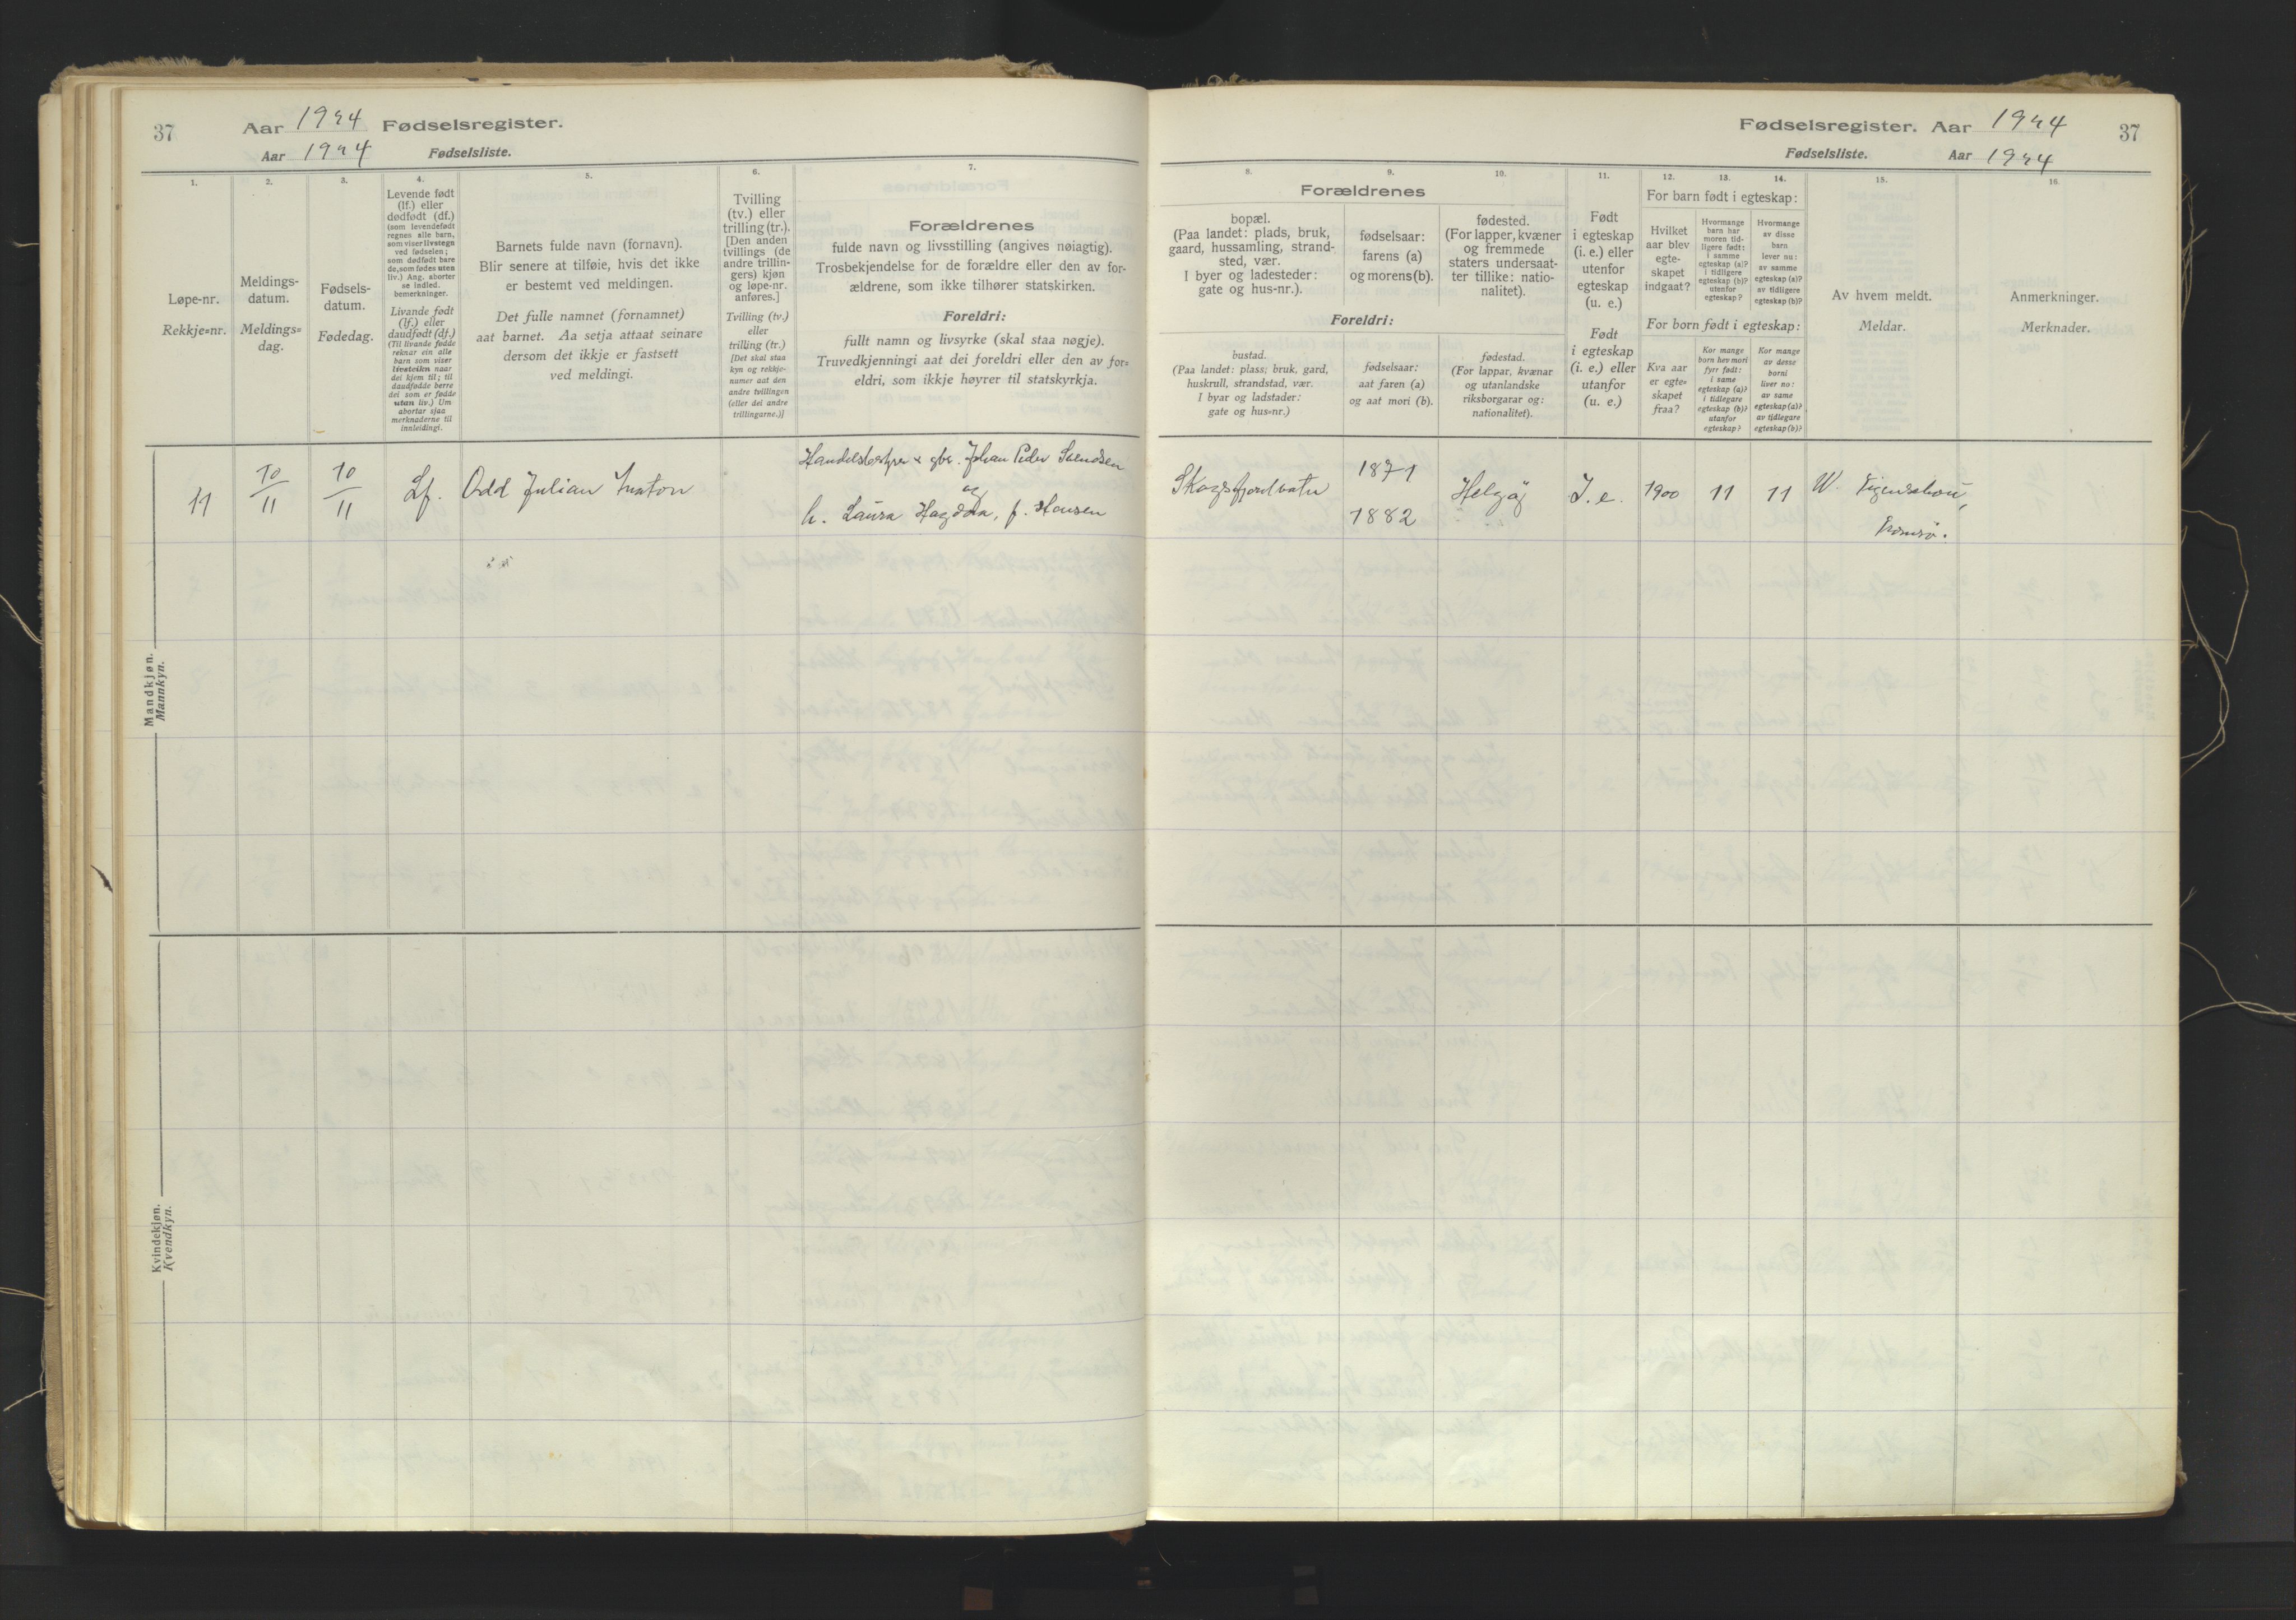 37
Aar 1924 Fødselsregister.
Aar 1924 Fødselsliste.
1.
Løpe-nr.
Rekkje=nr.
2.
Meldings-
datum.
Meldings=
dag.
3.
Fødsels-
datum.
Fødedag.
4.
Levende født
(lf.) eller
dødfødt (df.)
(som levendefødt
regnes alle barn,
som viser livstegn
ved fødselen;
som dødfødt bare
de, som fødes uten
liv.) Ang. aborter
se indled.
bemerkninger.
Livande født
(lf.) eller
daudfødt (df.)
(Til livande fødde
reknar ein alle
barn som viser
livsteikn naar
dei kjem til; til
daudfødde berre
dei som er fødde
utan liv.) Um
abortar sjaa
merknaderne til
innleidingi.
5.
Barnets fulde navn (fornavn).
Blir senere at tilføie, hvis det ikke
er bestemt ved meldingen.
Det fulle namnet (fornamnet)
aat barnet. Aa setja attaat seinare
dersom det ikkje er fastsett
ved meldingi.
6.
Tvilling
(tv.) eller
trilling (tr.).
[Den anden
tvillings (de
andre trillin-
gers) kjøn
og løpe-nr.
anføres.]
Tvilling (tv.)
eller
trilling (tr.)
[Det skal staa
kyn og rekkje-
numer aat den
andre tvillingen
(eller dei andre
trillingarne.)]
7.
Forældrenes
fulde navn og livsstilling (angives nøiagtig).
Trosbekjendelse for de forældre eller den av for-
ældrene, som ikke tilhører statskirken.
Foreldri:
fullt namn og livsyrke (skal staa nøgje).
Truvedkjenningi aat dei foreldri eller den av for=
eldri, som ikkje høyrer til statskyrkja.
Mandkjøn.
Mannkyn.
11
10/11
10/11
Lf.
Odd Julian
Johan Peder Svendsen
og
h. Laura Hagdda, f. Hansen
Kvindekjøn.
Kvendkyn.
Fødselsregister. Aar 1924
37
Fødselsliste. Aar 1924
8.
9.
10.
Forældrenes
bopæl.
(Paa landet: plads, bruk,
gaard, hussamling, strand-
sted, vær.
I byer og ladesteder:
gate og hus-nr.).
fødselsaar:
farens (a)
og morens (b).
fødested.
(For lapper, kvæner
og fremmede
staters undersaat-
ter tillike: natio-
nalitet).
Foreldri:
bustad.
(Paa landet: plass; bruk, gard,
huskrull, strandstad, vær.
I byar og ladstader:
gate og hus=nr.)
fødselsaar:
aat faren (a)
og aat mori (b).
fødestad.
(For lappar, kvænar
og utanlandske
riksborgarar og:
nationalitet).
11.
Født
i egteskap
(i. e.) eller
utenfor
egteskap
(u. e.)
Født
i egteskap
(i. e.) eller
utanfor
(u. e.)
12.
13.
14.
For barn født i egteskap:
Hvilket
aar blev
egte-
skapet
indgaat?
Hvormange
barn har
moren tid-
ligere født:
i samme
egteskap (a)?
i tidligere
egteskap (b)?
utenfor
egteskap?
Hvormange
av disse
barn
lever nu:
av samme
egteskap (a)?
av tidligere
egteskap (b)?
For born født i egteskap:
Kva aar
er egte=
skapet
fraa?
Kor mange
born hev mori
fyrr født:
i same
egteskap (a)?
i tidlegare
egteskap (b)?
utanfor
egteskap?
Kor mange
av desse
borni
liver no:
av same
egteskap (a)?
av tidlegare
egteskap (b)?
15.
Av hvem meldt.
Meldar.
16.
Anmerkninger.
Merknader.
Skogsfjordvatn
1871
1882
Helgøy
I. e.
1900
11
11
W.
Tromsø.